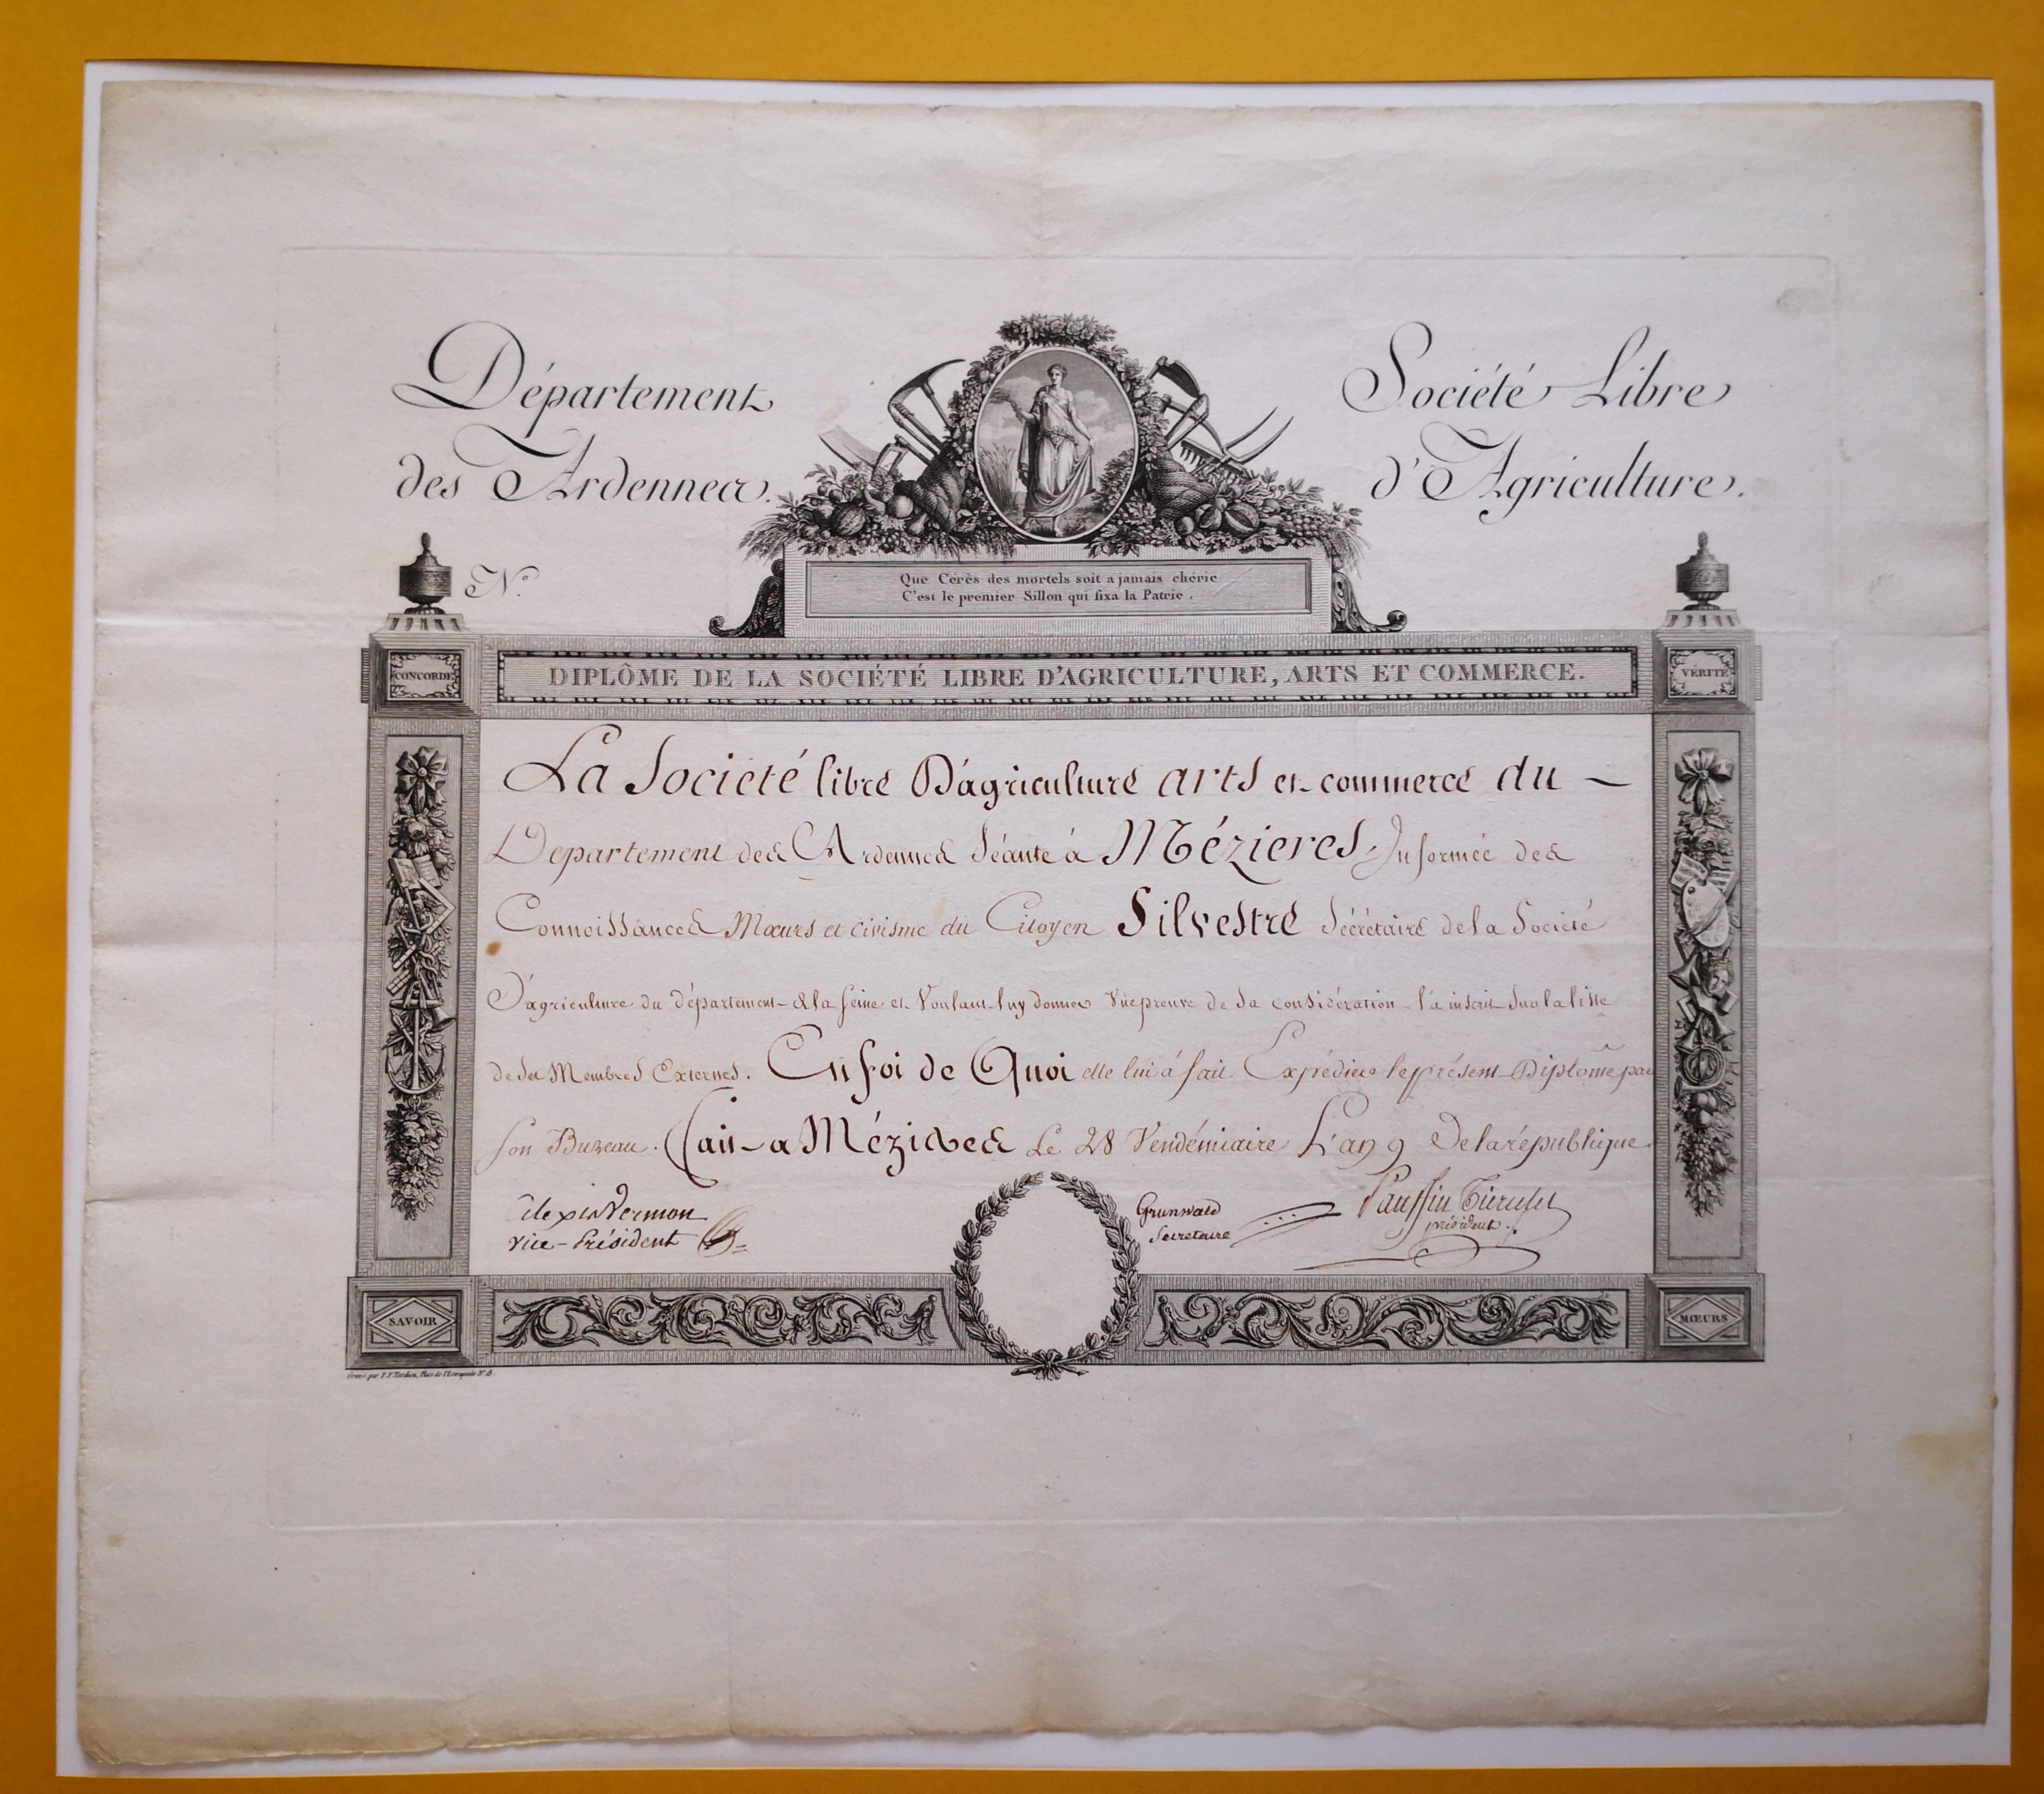 Département
des Ardennes.
Société Libre
d'Agriculture.
N.º
Que Cérès des mortels soit a jamais chérie
C'est le premier Sillon qui fixa la Patrie.
CONCORDE
DIPLÔME DE LA SOCIÉTÉ LIBRE D'AGRICULTURE, ARTS ET COMMERCE.
VÉRITÉ
La Société libre D'agriculture arts et commerce du
Departement des Ardennes Séante à Mézieres, Informée des
Connoissances Mœurs et civisme du Citoyen Silvestre Sécrétaire de la Société
D'agriculture du département de la Seine et Voulant luy donner Une preuve de sa considération l'a inscrit Sur la liste
de ses Membres Externes. En foi de Quoi elle lui à fait Expédier le présent Diplôme par
son Bureau. Fait a Mézieres Le 28 Vendémiaire L'an 9 De la république
Vermon
vice-Président
Grunwald
Secretaire
président.
SAVOIR
MŒURS
Gravé par Place de l'Estrapade N.º